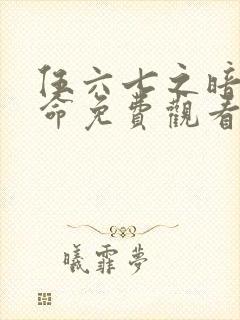 伍六七之暗
命免費觀看
曦霏夢